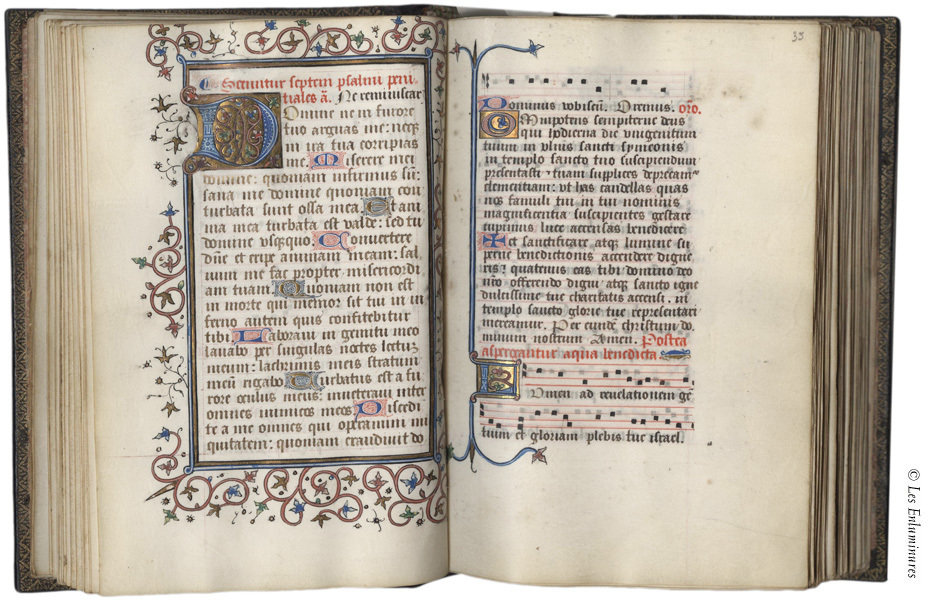 Secuntur septem psalmi peni-
tiales a̅. Ne reminiscar
Domine ne in furore
tuo arguas me: neq̅
ira tua corripias
me. Miserere mei
domine: quoniam infirmus su̅:
sana me domine quoniam con
turbata sunt ossa mea. Et ani
ma mea turbata est valde: sed tu
domine vsq̅quo. Conuertere
dn̅e et eripe animam meam: sal
uum me fac propter misericordi
am tuam. Quoniam non est
in morte qui memor sit tui in in
ferno autem quis confitebitur
tibi. Laboraui in gemitu meo
lauabo per singulas noctes lectu̅
meum: lachrimis meis stratum
meu̅ rigabo. Turbatus est a fu
rore oculus meus: inueteraui inter
omnes inimicos meos. Discedi
te a me omnes qui operamini ini
quitatem: quoniam exaudiuit do
35
Dominus vobiscu̅. Oremus. oro̅.
Omnipotens sempiterne deus
qui hodierna die vnigenitum
tuum in vlnis sancti symeonis
in templo sancto tuo suscipiendum
presentasti: tuam supplices deprecam̅
clementiam: vt has candellas quas
nos famuli tui in tui nominis
magnificentia suscipientes gestare
cupimus luce accensas benedicere
✠ et sanctificare atq̅ lumine su
perne benedictionis accendere digne
ris: quatenus eas tibi domino deo
nr̅o offerendo digni atq̅ sancto igne
dulcissime tue charitatis accensi. in
templo sancto glorie tue representari
mereamur. Per eunde̅ christum do
minum nostrum Amen. Postea
aspergantur aqua benedicta
Lumen ad reuelationem ge̅
tium et gloriam plebis tue israel.
© Les Enluminures